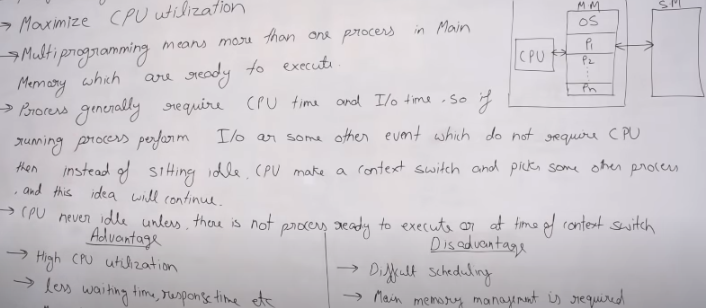 → Maximize CPU utilization
→ Multiprogramming means more than one process in Main
Memory which are ready to execute.
→ Process generally require CPU time and I/o time. So if
running process perform I/o or some other event which do not require CPU
then instead of sitting idle, CPU make a context switch and picks some other process
. and this idea will continue.
→ CPU never idle unless, there is not process ready to execute or at time of context switch
MM
OS
P1
P2
Pn
CPU
SM
Advantage
→ High CPU utilization
→ less waiting time, response time etc
Disadvantage
→ Difficult scheduling
→ Main memory management is required